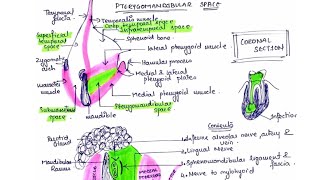 PTERYGOMANDIBULAR SPACE
Temporal fascia
Temporalis muscle
Deep temporal space
Infratemporal space
Superficial temporal space
Sphenoid bone
Lateral pterygoid muscle
Zygomatic arch
Hamulus process
Medial & lateral pterygoid plates
Masseter muscle
Medial pterygoid muscle
Submasseteric space
Pterygomandibular space
mandible
CORONAL SECTION
Infection
Contents
Parotid Gland
1. Inferior alveolar nerve, artery & vein.
2. Lingual Nerve
3. Sphenomandibular ligament & fascia
4. Nerve to mylohyoid
Mandibular Ramus